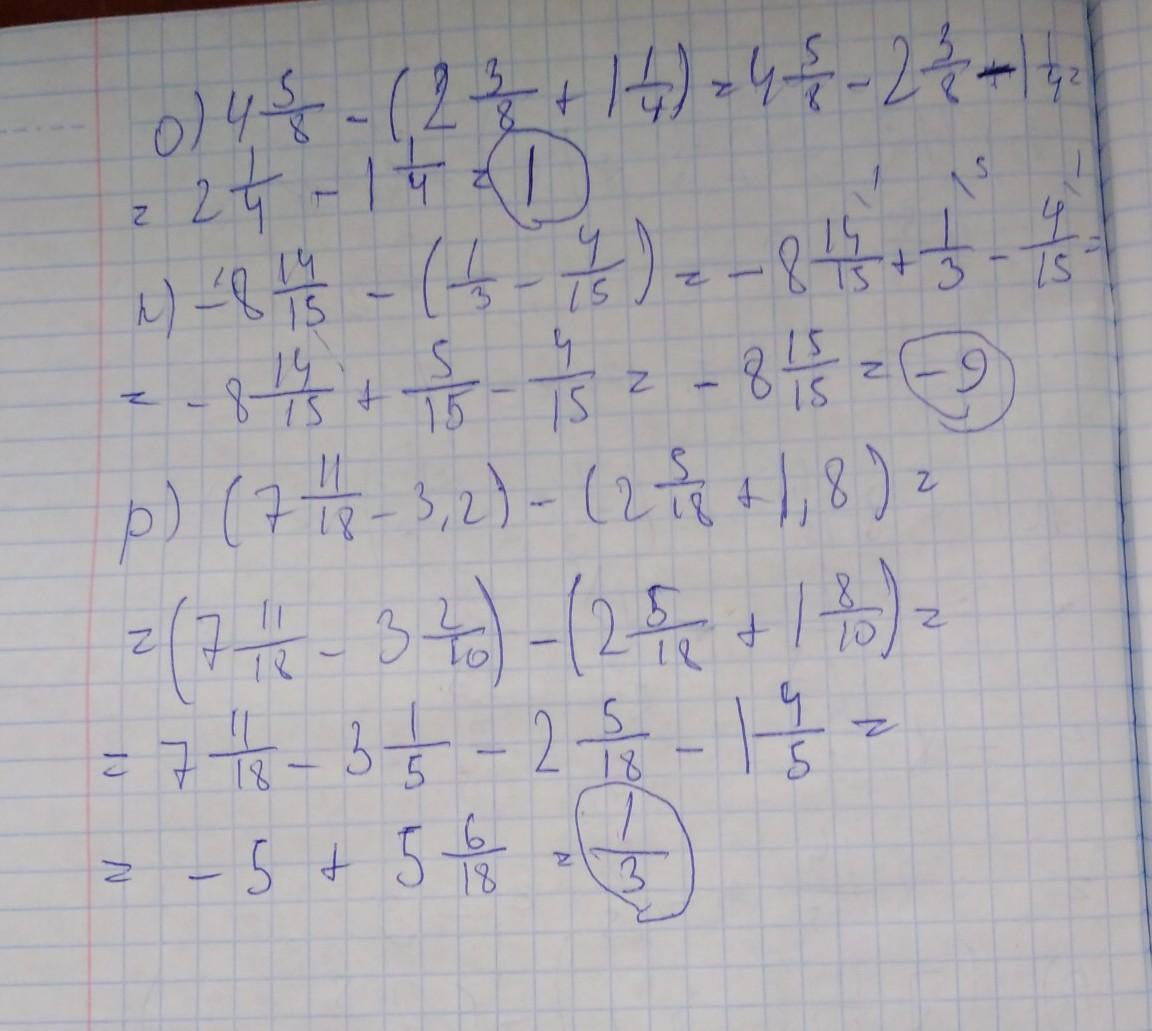 о) 4 5/8 - (2 3/8 + 1 1/4) = 4 5/8 - 2 3/8 - 1 1/4 =
= 2 1/4 - 1 1/4 = 1
п) -8 14/15 - (1/3 - 4/15) = -8 14/15 + 1/3 - 4/15 =
= -8 14/15 + 5/15 - 4/15 = -8 15/15 = -9
р) (7 11/18 - 3,2) - (2 5/18 + 1,8) =
= (7 11/18 - 3 2/10) - (2 5/18 + 1 8/10) =
= 7 11/18 - 3 1/5 - 2 5/18 - 1 4/5 =
= -5 + 5 6/18 = 1/3